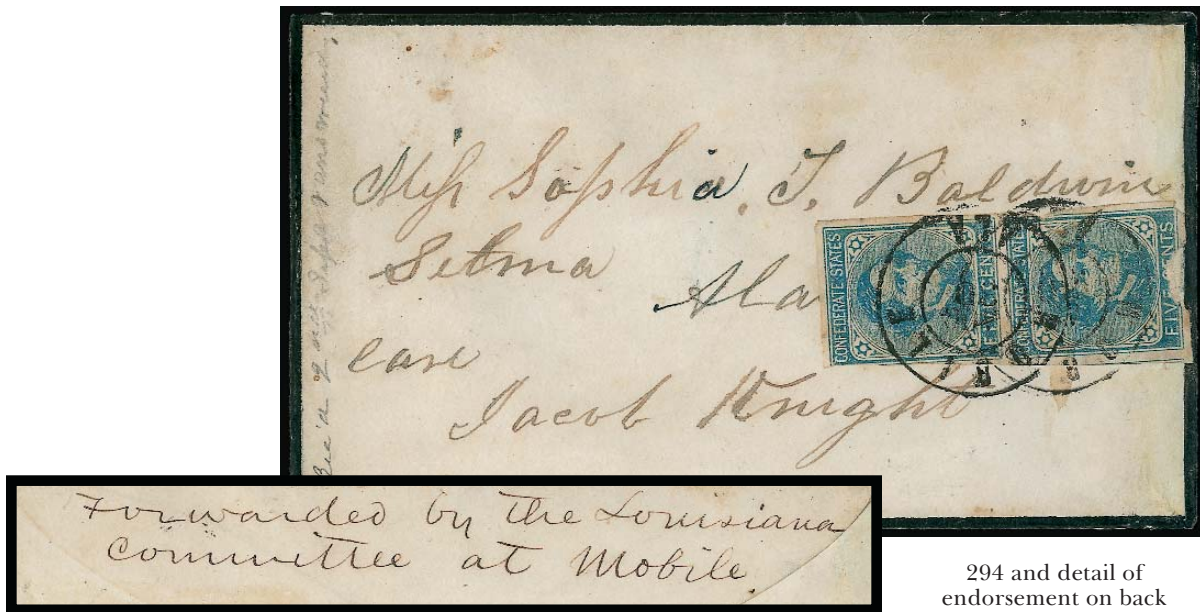 Rec'd 2nd Sept answered
Miss Sophia. T. Baldwin
Selma
Ala
care
Jacob Knight
CONFEDERATE STATES
FIVE CENTS
CONFEDERATE STATES
FIVE CENTS
MOBILE
ALA
Forwarded by the Louisiana
Committee at Mobile
294 and detail of
endorsement on back